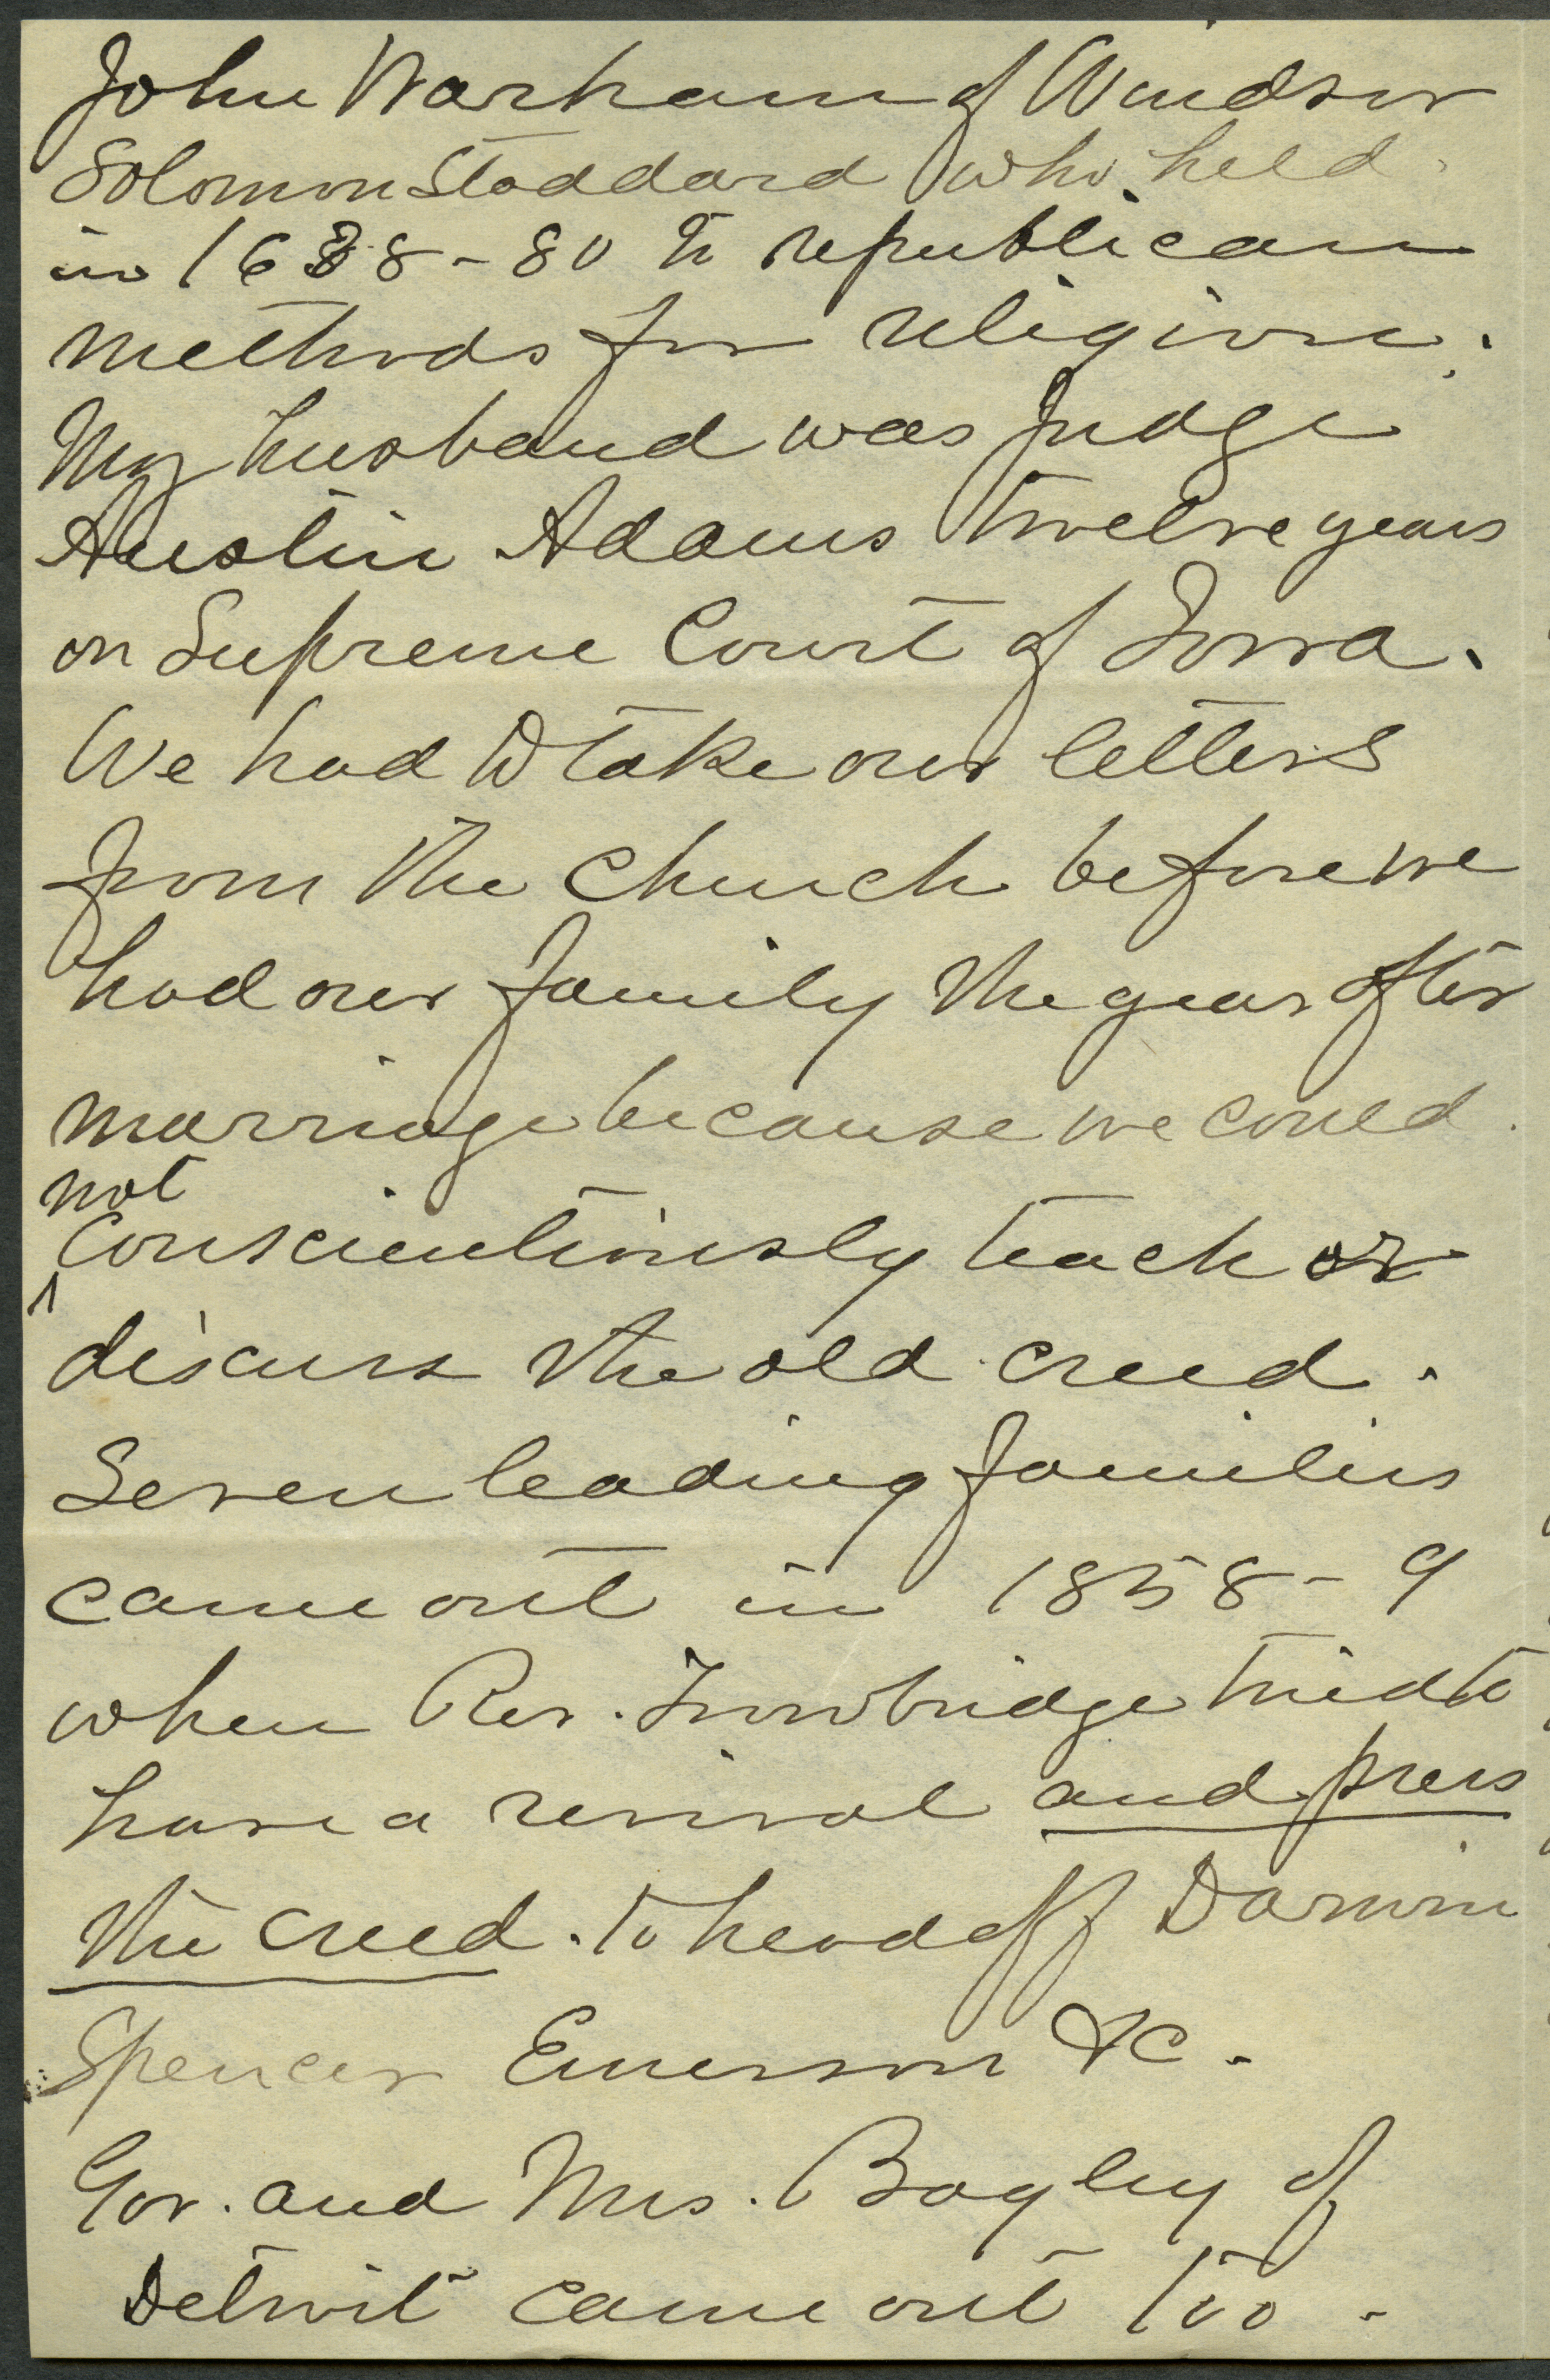 John Warham of Windsor
Solomon Stoddard who held
in 1638-80 to republican
methods for religion.
My husband was Judge
Austin Adams twelve years
on Supreme Court of Iowa.
We had to take our letters
from the church before we
had our family the year after
marriage because we could
not
conscientiously teach or
discuss the old creed.
Seven leading families
came out in 1858-9
when Rev. Trowbridge tried to
have a revival and press
the creed. to head off Darwin
Spencer Emerson &c.
Gov. and Mrs. Bagley of
Detroit came out too.